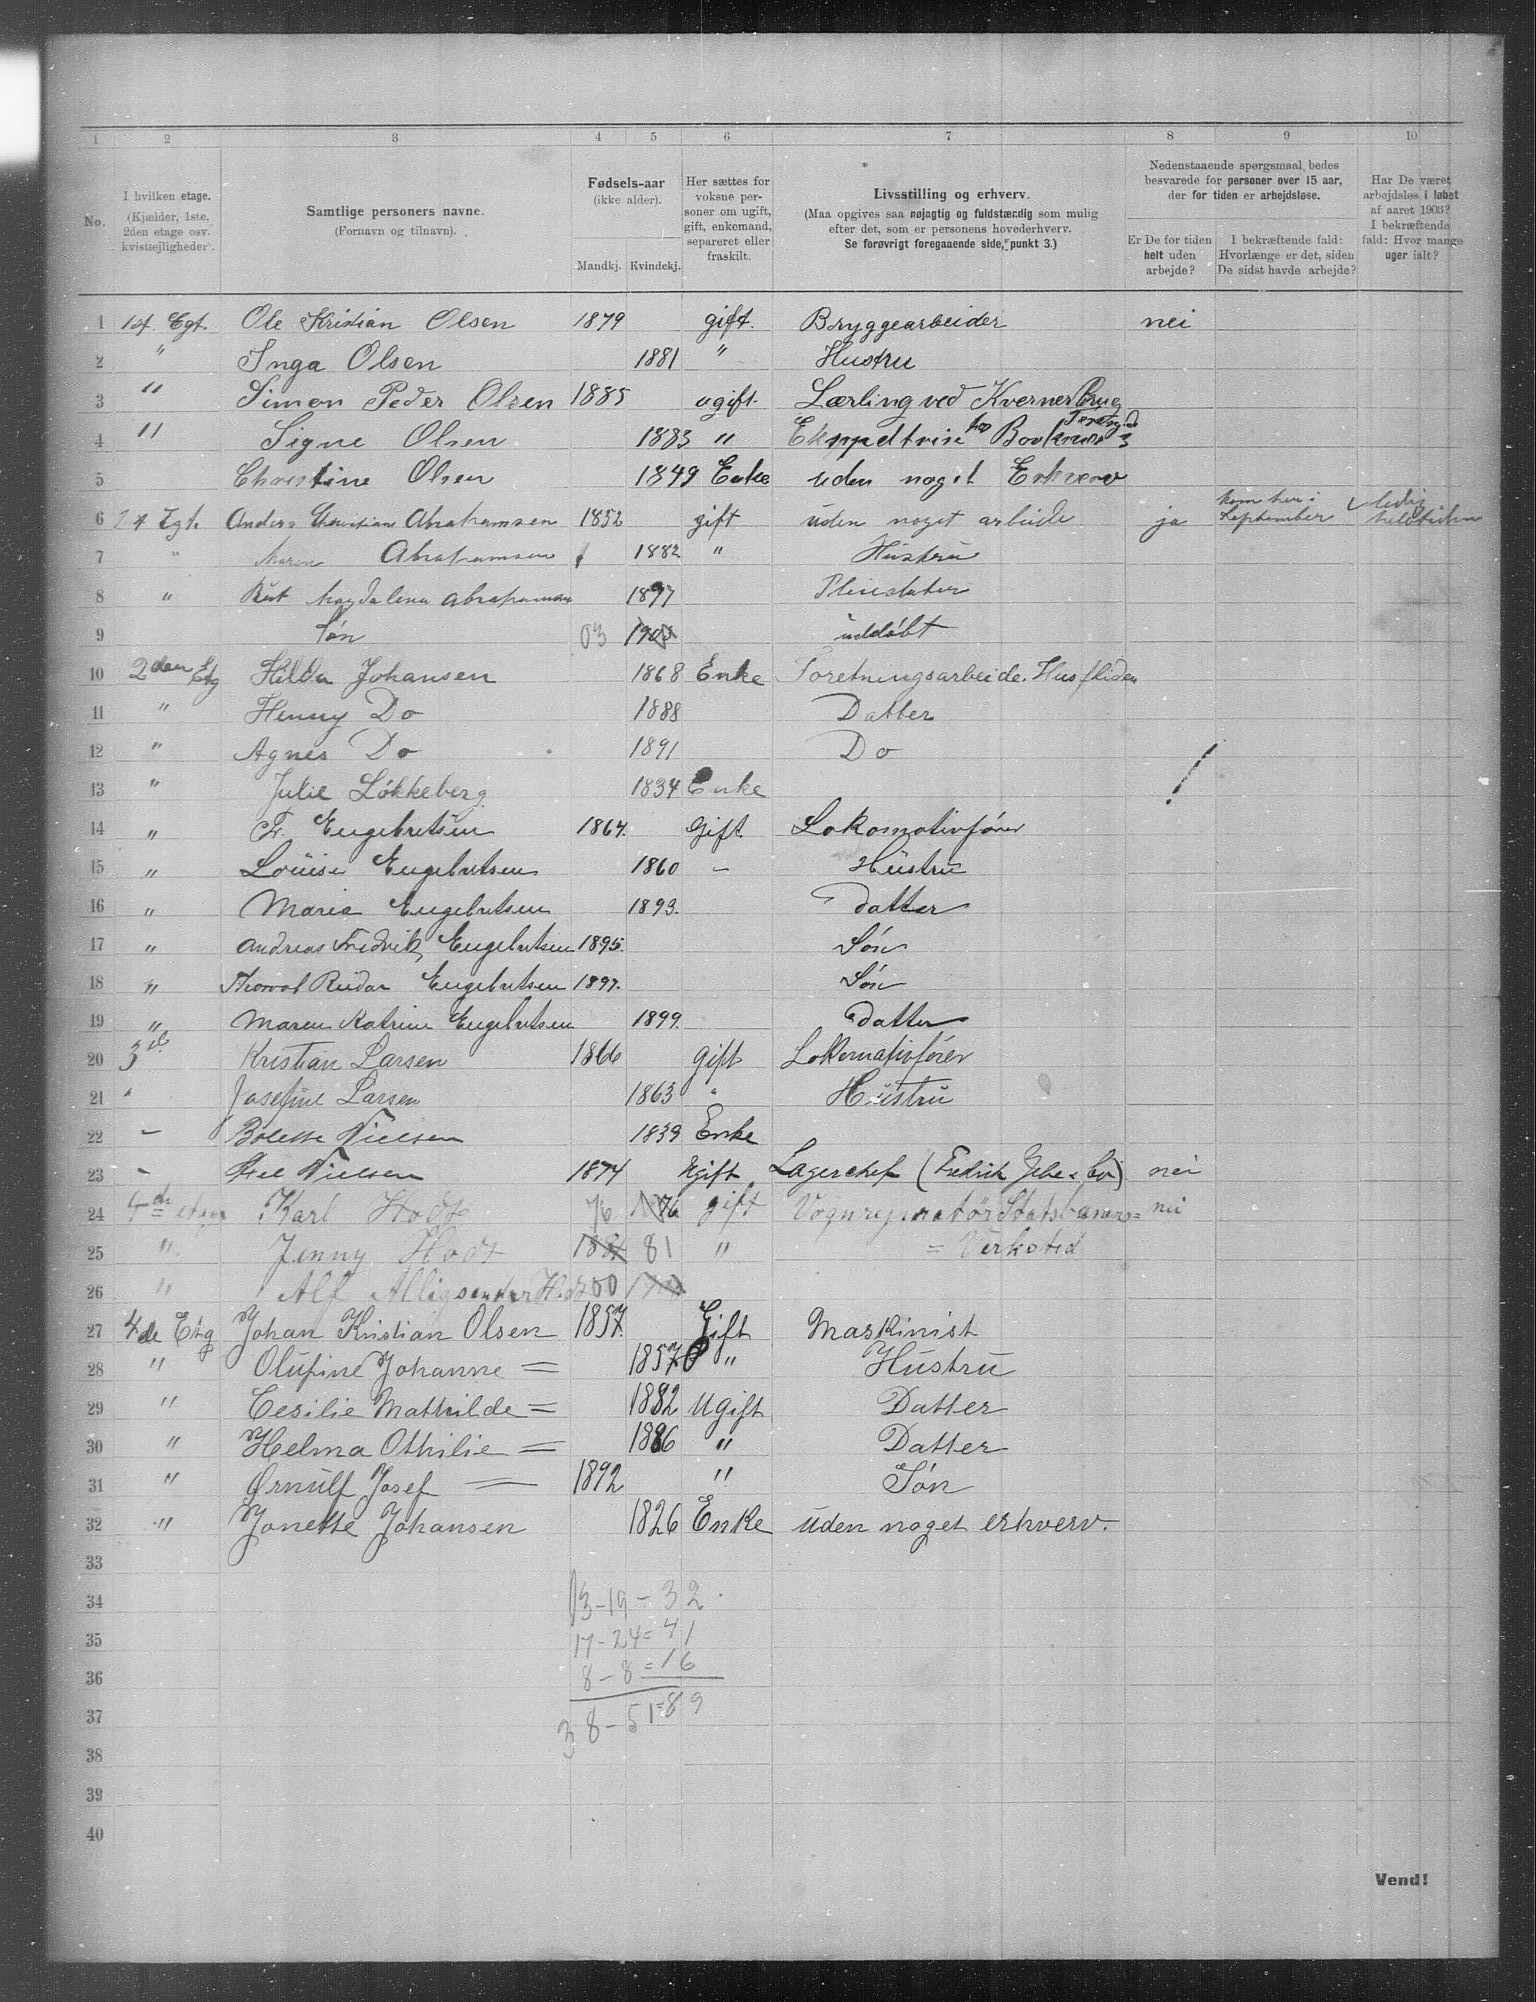 1 2 3 4 5 6 7 8 9 10
No.
I hvilken etage.
(Kjælder, 1ste,
2den etage osv.
kvistlejligheder).
Samtlige personers navne.
(Fornavn og tilnavn).
Fødsels-aar
(ikke alder).
Mandkj. Kvindekj.
Her sættes for
voksne per-
soner om ugift,
gift, enkemand,
separeret eller
fraskilt.
Livsstilling og erhverv.
(Maa opgives saa nøjagtig og fuldstændig som mulig
efter det, som er personens hovederhverv.
Se forøvrigt foregaaende side, punkt 3.)
Nedenstaaende spørgsmaal bedes
besvarede for personer over 15 aar,
der for tiden er arbejdsløse.
Er De for tiden
helt uden
arbejde?
I bekræftende fald:
Hvorlænge er det, siden
De sidst havde arbejde?
Har De været
arbejdsløs i løbet
af aaret 1903?
I bekræftende
fald: Hvor mange
uger ialt?
1 1st. Egt. Ole Kristian Olsen 1879 gift. Bryggearbeider nei
2 " Inga Olsen 1881 " Hustru
3 " Simon Peder Olsen 1885 ugift Lærling ved Kverner Brug
4 " Signe Olsen 1883 " hos
5 Christine Olsen 1849 Enke uden noget Erhverv
6 Egt. Anders Christian Abrahamsen 1852 gift uden noget arbeide ja kom her i September ledig
7 " Maren Abrahamsen 1882 " Hustru
8 " Magdalena Abrahamsen 1897
9 Søn 03 1903 uddøbt
10 2den Etg Hilda Johansen 1868 Enke Foretningsarbeide. Husfliden
11 " Henny Do 1888 Datter
12 " Agnes Do 1891 Do
13 " Julie Løkkeberg 1834 Enke
14 " Fr. Engebretsen 1864. Gift Lokomotivfører
15 " Louise Engebretsen 1860 - Hustru
16 " Marie Engebretsen 1893. datter
17 " Andreas Fredrik Engebretsen 1895. Søn
18 " Thorval Reidar Engebretsen 1897. Søn
19 " Maren Katrine Engebretsen 1899. datter
20 3d. Kristian Larsen 1866 gift Lokomotivfører
21 " Josefine Larsen 1863 " Hustru
22 - Bolette Nielsen 1839 Enke
23 - Nielsen 1874 Ugift Lagerchef (Fredrik & Co) nei
24 etage Karl Hodt 76 1876 gift Vognreperatør Statsbaner= nei
25 " Jenny Hodt 1881 81 " = Verksted
26 " Alf 00
27 4de Etg Johan Kristian Olsen 1857. Gift Maskinist
28 " Olufine Johanne = 1857 " Hustru
29 " Cesilie Mathilde = 1882 Ugift Datter
30 " Helma Othilie = 1886 " Datter
31 " Ørnulf Josef = 1892 " Søn
32 " Jonette Johansen 1826 Enke uden noget erhverv.
33
34 13-19-32
35 17-24=41
36 8-8=16
37 38-51=89
38
39
40
Vend!